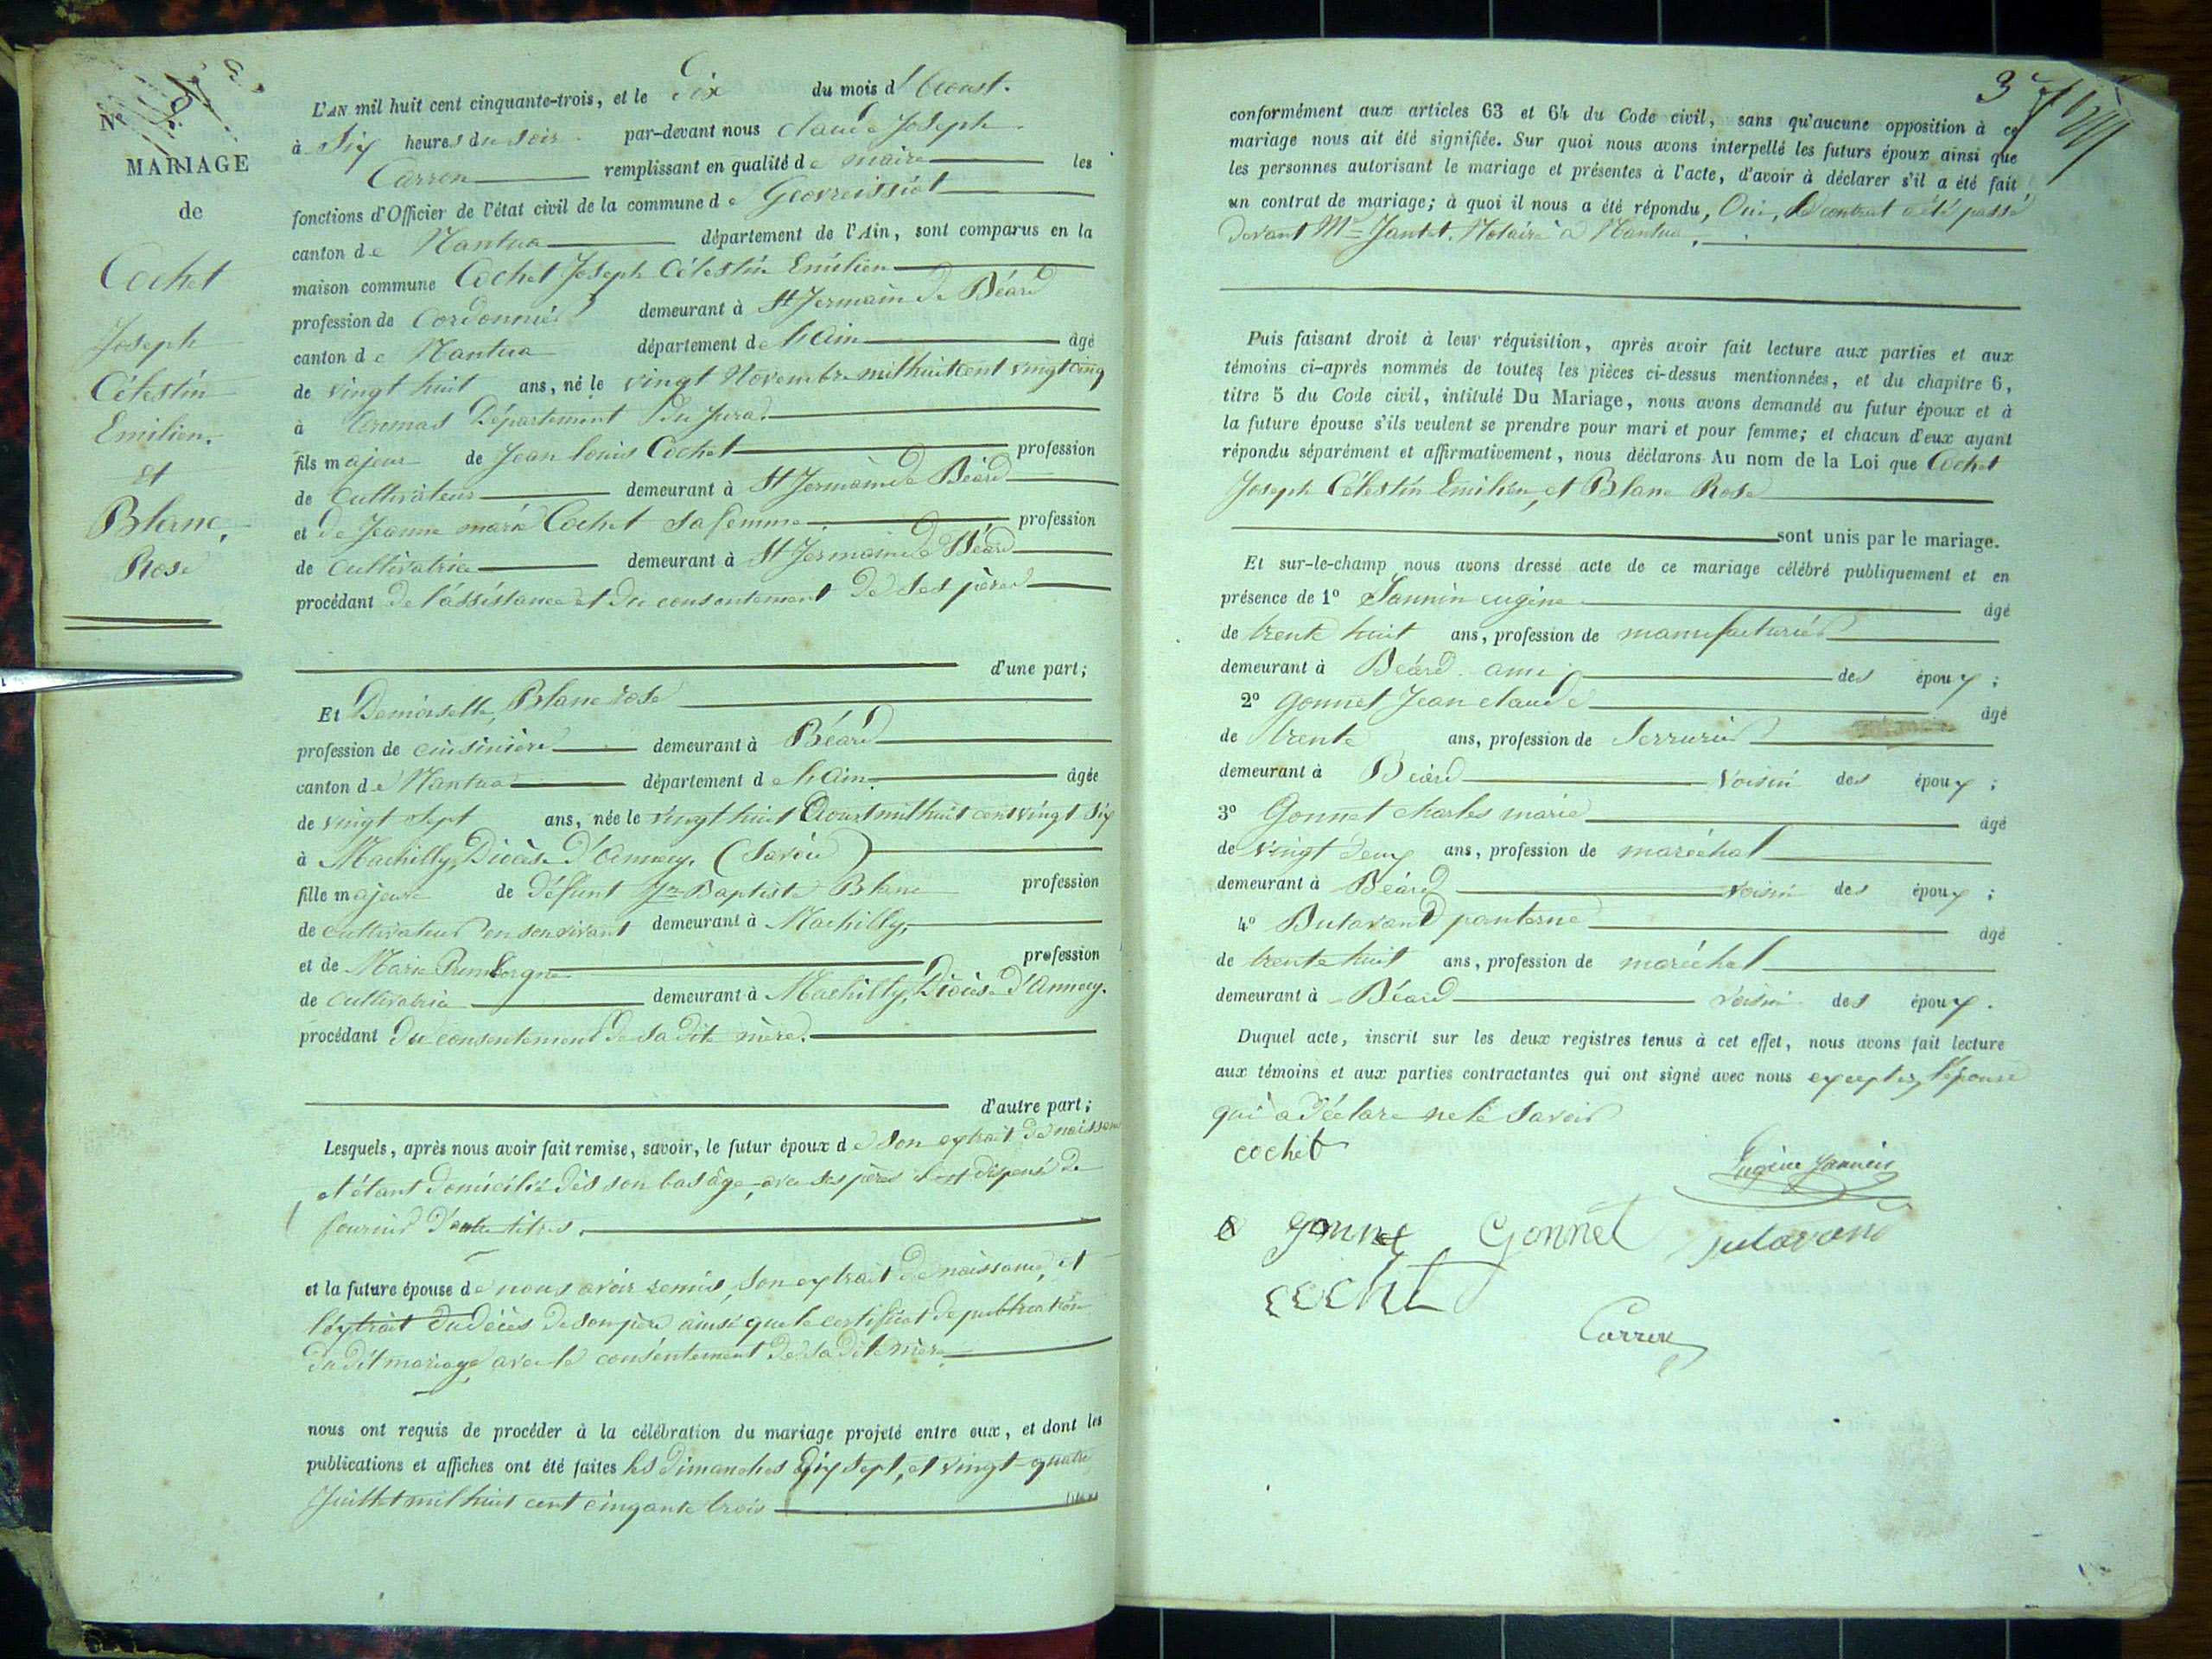 Nº
MARIAGE
de
Cochet
Joseph
Célestin
Emilien.
et
Blanc,
Rose
L'AN mil huit cent cinquante-trois, et le Six du mois d'Aoust.
à Six heures du soir par-devant nous Claude Joseph
Carron remplissant en qualité de maire les
fonctions d'Officier de l'état civil de la commune de Geovreissiat
canton de Nantua département de l'Ain, sont comparus en la
maison commune Cochet Joseph Célestin Emilien
profession de Cordonnier demeurant à St Jermain de Béard
canton de Nantua département de l'Ain âgé
de vingt huit ans, né le vingt Novembre mil huit cent vingt cinq
à Département du Jura.
fils majeur de Jean Louis Cochet profession
de Cultivateur demeurant à St Jermain de Béard
et de Jeanne marie Cochet sa femme profession
de Cultivatrice demeurant à St Jermain de Béard
procédant de l'assistance et du consentement de ses pères
d'une part;
Et Demoiselle, Blanc rose
profession de cuisinière demeurant à Béard
canton de Nantua département de l'Ain âgée
de vingt sept ans, née le vingt huit Aoust mil huit cent vingt six
à Machilly, Diocèse d'Annecy. (Savoie)
fille majeure de défunt Jn Baptiste Blanc profession
de cultivateur en son vivant demeurant à Machilly,
et de Marie profession
de Cultivatrice demeurant à Machilly, Diocèse d'Annecy.
procédant du consentement de sa dite mère.
d'autre part;
Lesquels, après nous avoir fait remise, savoir, le futur époux de son extrait de naissance
et étant domicilié dès son bas âge, avec ses pères il est dispensé de
fournir d'autre titres.
et la future épouse de nous avoir remis, son extrait de naissance, et
l'extrait du décès de son père ainsi que le certificat de publication
du dit mariage, avec le consentement de sa dite mère
nous ont requis de procéder à la célébration du mariage projeté entre eux, et dont les
publications et affiches ont été faites les dimanches dix sept, et vingt-quatre
Juillet mil huit cent cinqante trois
3
conformément aux articles 63 et 64 du Code civil, sans qu'aucune opposition à ce
mariage nous ait été signifiée. Sur quoi nous avons interpellé les futurs époux ainsi que
les personnes autorisant le mariage et présentes à l'acte, d'avoir à déclarer s'il a été fait
un contrat de mariage; à quoi il nous a été répondu, Oui, le contrat a été passé
devant Me Jantet. Notaire à Nantua.
Puis faisant droit à leur réquisition, après avoir fait lecture aux parties et aux
témoins ci-après nommés de toutes les pièces ci-dessus mentionnées, et du chapitre 6,
titre 5 du Code civil, intitulé Du Mariage, nous avons demandé au futur époux et à
la future épouse s'ils veulent se prendre pour mari et pour femme; et chacun d'eux ayant
répondu séparément et affirmativement, nous déclarons Au nom de la Loi que Cochet
Joseph Célestin Emilien, et Blanc Rose
sont unis par le mariage.
Et sur-le-champ nous avons dressé acte de ce mariage célébré publiquement et en
présence de 1º Jannin eugène âgé
de trente huit ans, profession de manufacturier
demeurant à Béard ami des époux;
2º Gonnet Jean claude âgé
de trente ans, profession de Serrurier
demeurant à Béard voisin des époux;
3º Gonnet charles marie âgé
de vingt deux ans, profession de maréchal
demeurant à Béard voisin des époux;
4º Butavand panterne âgé
de trente huit ans, profession de maréchal
demeurant à Béard voisin des époux.
Duquel acte, inscrit sur les deux registres tenus à cet effet, nous avons fait lecture
aux témoins et aux parties contractantes qui ont signé avec nous exceptez l'épouse
qui a déclare ne le savoir
cochet
Eugène Jannin
gonnet Gonnet butavand
cochet
Carron